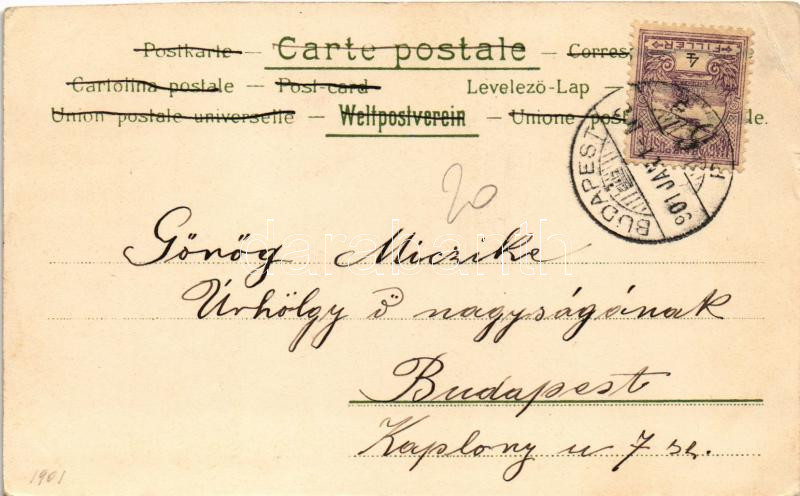 Postkarte — Carte postale — Corres
Cartolina postale — Post-card Levelező-Lap —
Union postale universelle — Weltpostverein — Unione post de.
4
FILLER
BUDAPEST
901 JAN
20
Görög Miczike
Úrhölgy ő nagyságának
Budapest
Kaplony u 7 sz.
1901
darabanth